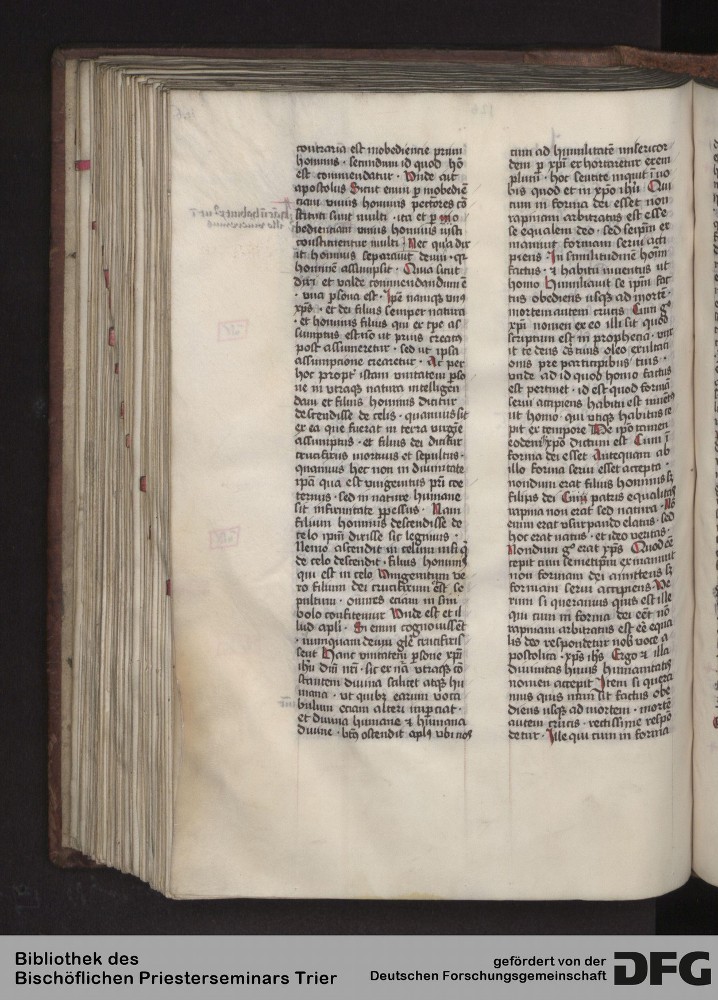 contraria est inobediencie primi
hominis · secundum id quod hō
est commendatur · Unde ait
apostolus Sicut enim p inobediē
ciam vnius hominis pectores cō
stituti sunt multi · ita et p ino
bedientiam vnius hominis iusti
constituentur multi · Nec qͣ dix
it hominis separauit deum · qr
hominē assumpsit · Quia sicut
dixi et valde commendandum ē
· vna psona est · Ipē namqꝫ vnꝰ
xps · et dei filius semper natura
· et hominis filius qui ex tpe as
sumptus est · nō ut prius creatꝰ
post assumeretur · sed ut ipsa
assumpcione crearetur · Ac per
hoc propt istam vnitatem pso
ne in vtraqꝫ natura intelligen
dam et filius hominis dicitur
descendisse de celis · quamuis sit
ex ea que fuerat in terra virgīe
assumptus · et filius dei dicitur
crucifixus mortuus et sepultus ·
quamuis hec non in diuinitate
ipā qua est vnigenitus pri coe
ternus · sed in nature humane
sit infirmitate ppessus · Nam
filium hominis descendisse de
celo ipm dixisse sic legimus ·
Nemo ascendit in celum nisi q̄
de celo descendit · filius hominis
qui est in celo Vnigenitum ve
ro filium dei crucifixum est se
pultum · omnes eciam in sim
bolo confitemur Unde est et il
lud apli · Si enim cognouissēt
· numquam deum glē crucifixis
sent Hanc vnitatem psone xpī
ihu dn̄i nr̄i · sic ex nā vtraqꝫ cō
stantem diuina scilicet atqꝫ hu
mana · ut quibꝫ earum voca
bulum eciam alteri imperciat ·
et diuina humane ⁊ humana
diuine · btūs ostendit aplꝰ vbi nos
cum ad humilitatē misericor
dem p xpī exhortaretur exem
plum · hoc sentite inquit ī uo
bis quod et in xpo ihu Qui
cum in forma dei esset non
rapinam arbitratus est esse
se equalem deo · sed seipm ex
inaniuit formam serui acci
piens · In similitudinē hoīm
factus · ⁊ habitu inuentus ut
homo Humiliauit se ipm fac
tus obediens usqꝫ ad mortē ·
mortem autem crucis Cum gͦ
xpī nomen ex eo illi sit quod
scriptum est in prophecia · vnx
it te deus dūs tuus oleo exultaci
onis pre participibus tuis ·
vnde ad id quod homo factus
est pertinet · id est quod formā
serui accipiens habitu est inuētꝰ
ut homo qui vtiqꝫ habitus ce
pit ex tempore De ipo tamen
eodem xpo dictum est Cum ī
forma dei esset Antequam ab
illo forma serui esset accepta ·
nondum erat filius hominis sꝫ
filius dei Cui patris equalitas
rapina non erat sed natura · Nō
enim erat vsurpando elatus · sed
hoc erat natus · et ideo veritas ·
Nondum gͦ erat xps Quod ce
cepit cum semetipm exinaniuit
non formam dei amittens sꝫ
formam serui accipiens · Ve
rum si queramus quis est ille
qui cum in forma dei eēt nō
rapinam arbitratus est eē equa
lis deo respondetur nob voce a
postolica · xps ihs Ergo ⁊ illa
diuinitas huius humanitatis
nomen accepit Item si quera
mus quis nam sit factus obe
diens usqꝫ ad mortem · mortē
autem crucis · rectissime respō
detur · Ille qui cum in forma
Bibliothek des
Bischöflichen Priesterseminars Trier
gefördert von der
Deutschen Forschungsgemeinschaft
DFG